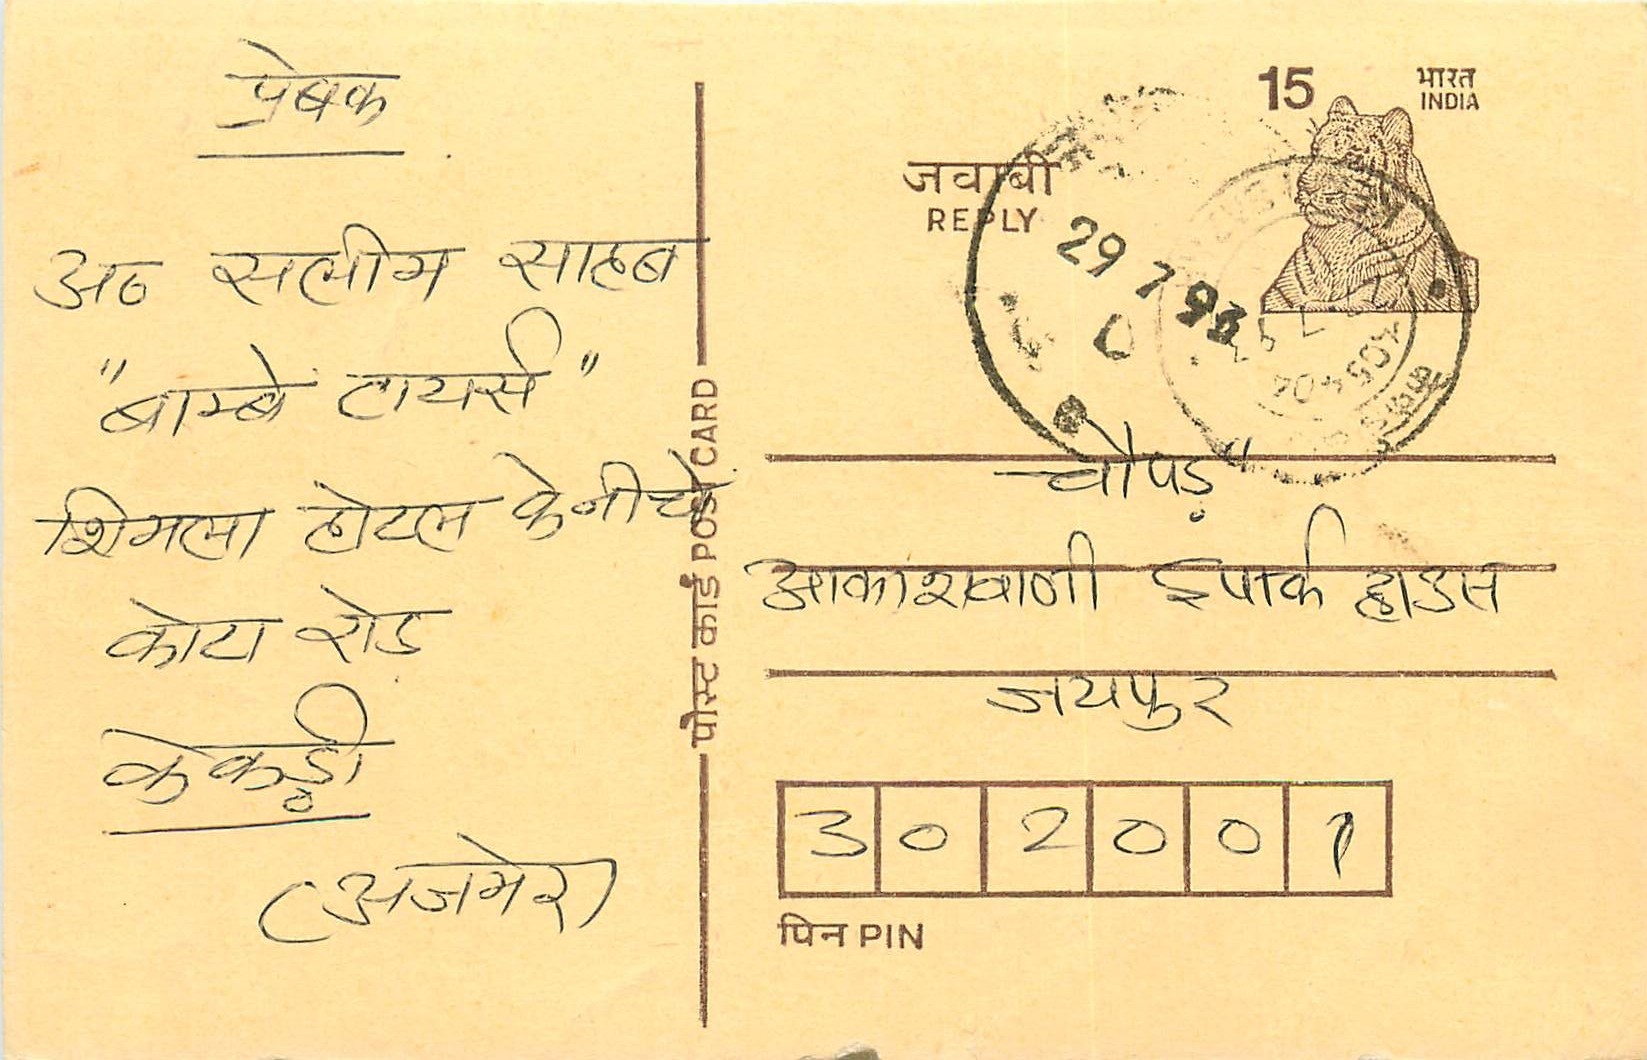 प्रेषक
अठ सलीम साहब
"बाम्बे टायर्स"
शिमला होटल के नीचे
कोटा रोड
केकड़ी
(अजमेर)
पोस्ट कार्ड POST CARD
15
भारत
INDIA
जवाबी
REPLY
29 7 93
"चौपड़"
आकाशवाणी इपार्क हाउस
जयपुर
302001
पिन PIN